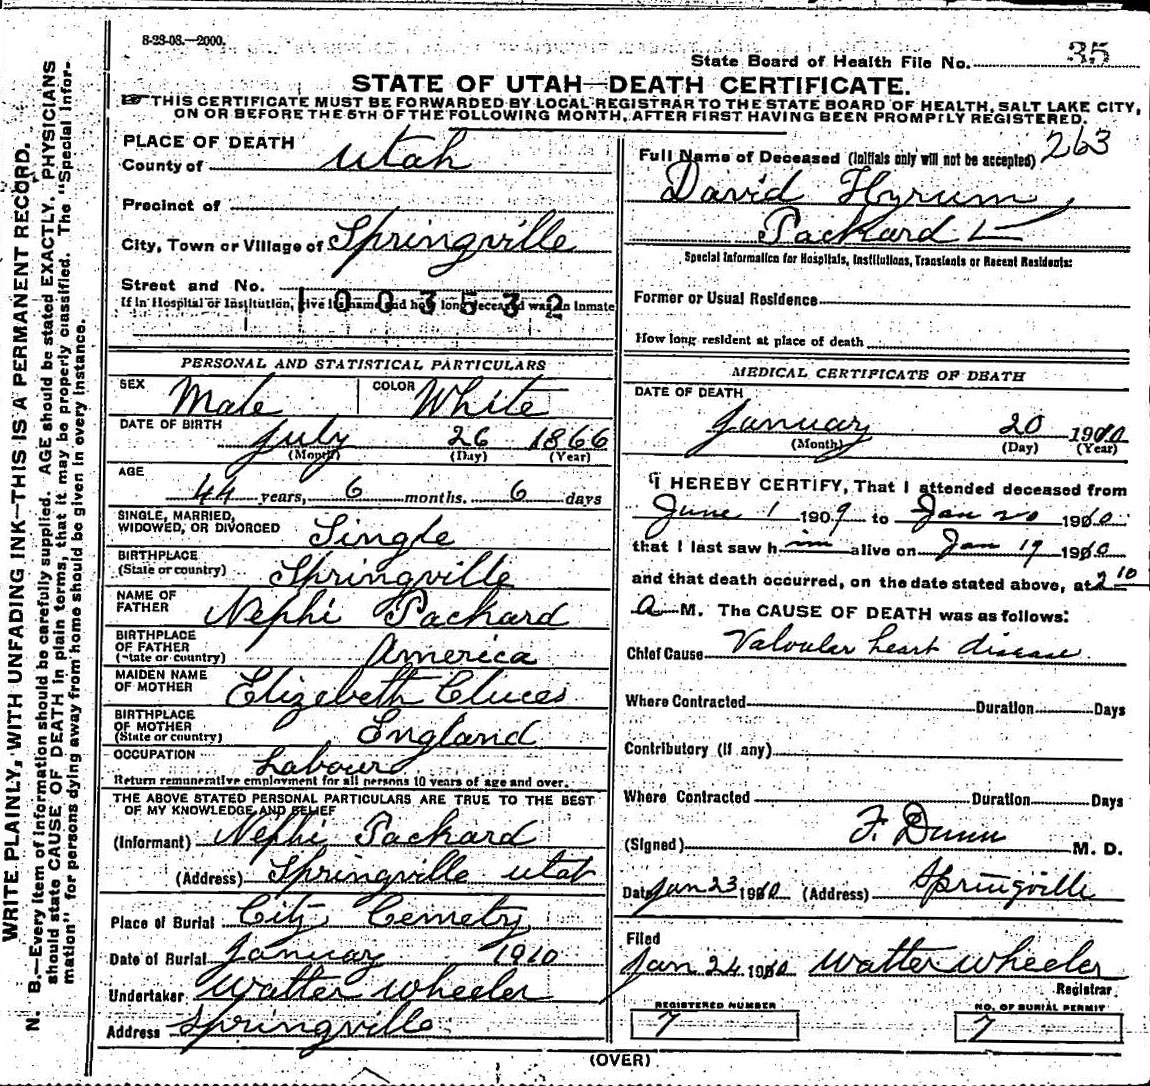 8-23-08.—2000.
State Board of Health File No. 35
STATE OF UTAH—DEATH CERTIFICATE.
THIS CERTIFICATE MUST BE FORWARDED BY LOCAL REGISTRAR TO THE STATE BOARD OF HEALTH, SALT LAKE CITY,
ON OR BEFORE THE 5TH OF THE FOLLOWING MONTH, AFTER FIRST HAVING BEEN PROMPTLY REGISTERED.
WRITE PLAINLY, WITH UNFADING INK—THIS IS A PERMANENT RECORD.
N. B.—Every item of information should be carefully supplied. AGE should be stated EXACTLY. PHYSICIANS
should state CAUSE OF DEATH in plain terms, that it may be properly classified. The "Special Infor-
mation" for persons dying away from home should be given in every instance.
PLACE OF DEATH
County of Utah
Precinct of
City, Town or Village of Springville
Street and No.
If in Hospital or Institution, give its name and how long deceased was an inmate
1003532
PERSONAL AND STATISTICAL PARTICULARS
SEX Male COLOR White
DATE OF BIRTH July 26 1866
(Month) (Day) (Year)
AGE 44 years, 6 months. 6 days
SINGLE, MARRIED,
WIDOWED, OR DIVORCED Single
BIRTHPLACE
(State or country) Springville
NAME OF
FATHER Nephi Packard
BIRTHPLACE
OF FATHER
(State or country) America
MAIDEN NAME
OF MOTHER Elizabeth Cluces
BIRTHPLACE
OF MOTHER
(State or country) England
OCCUPATION Labour
Return remunerative employment for all persons 10 years of age and over.
THE ABOVE STATED PERSONAL PARTICULARS ARE TRUE TO THE BEST
OF MY KNOWLEDGE AND BELIEF
(Informant) Nephi Packard
(Address) Springville Utah
Place of Burial City Cemetry
Date of Burial January 1910
Undertaker Walter Wheeler
Address Springville
263
Full Name of Deceased (Initials only will not be accepted)
David Hyrum
Packard
Special Information for Hospitals, Institutions, Transients or Recent Residents:
Former or Usual Residence
How long resident at place of death
MEDICAL CERTIFICATE OF DEATH
DATE OF DEATH
January 20 1910
(Month) (Day) (Year)
I HEREBY CERTIFY, That I attended deceased from
June 1 1909 to Jan 20 1910
that I last saw him alive on Jan 19 1910
and that death occurred, on the date stated above, at 2 10
a M. The CAUSE OF DEATH was as follows:
Chief Cause Valvular heart disease
Where Contracted Duration Days
Contributory (if any)
Where Contracted Duration Days
(Signed) F. Dunn M. D.
Date Jan 23 1910 (Address) Springville
Filed
Jan 24 1910 Walter Wheeler
Registrar
REGISTERED NUMBER
7
NO. OF BURIAL PERMIT
7
(OVER)